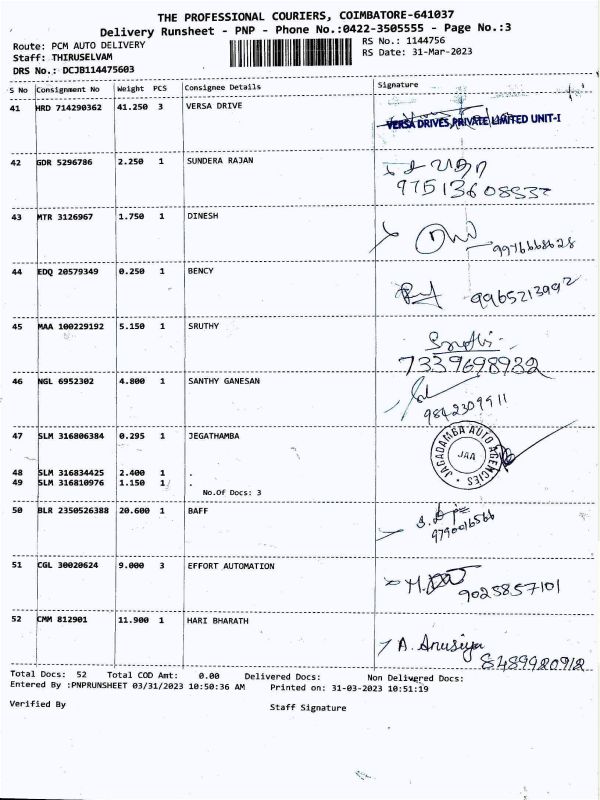 THE PROFESSIONAL COURIERS, COIMBATORE-641037
Delivery Runsheet - PNP - Phone No.:0422-3505555 - Page No.:3
Route: PCM AUTO DELIVERY
RS No.: 1144756
Staff: THIRUSELVAM
RS Date: 31-Mar-2023
DRS No.: DCJB114475603
S No Consignment No Weight PCS Consignee Details Signature
41 HRD 714290362 41.250 3 VERSA DRIVE
VERSA DRIVES PRIVATE LIMITED UNIT-I
42 GDR 5296786 2.250 1 SUNDERA RAJAN
43 MTR 3126967 1.750 1 DINESH
9976668628
44 EDQ 20579349 0.250 1 BENCY
9965213992
45 MAA 100229192 5.150 1 SRUTHY
7339698932
46 NGL 6952302 4.800 1 SANTHY GANESAN
9842309911
47 SLM 316806384 0.295 1 JEGATHAMBA
JAGADAMBA AUTO AGENCIES
JAA
48 SLM 316834425 2.400 1 .
49 SLM 316810976 1.150 1 .
No.Of Docs: 3
50 BLR 2350526388 20.600 1 BAFF
9790016566
51 CGL 30020624 9.000 3 EFFORT AUTOMATION
9025857101
52 CMM 812901 11.900 1 HARI BHARATH
A. Anusiya
8489920912
Total Docs: 52 Total COD Amt: 0.00 Delivered Docs: Non Delivered Docs:
Entered By :PNPRUNSHEET 03/31/2023 10:50:36 AM Printed on: 31-03-2023 10:51:19
Verified By
Staff Signature